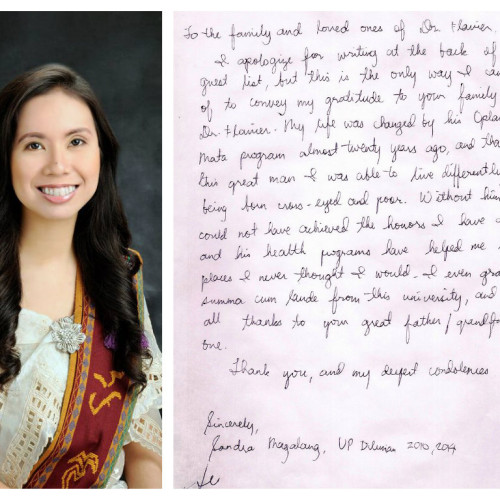 To the family and loved ones of Dr. Flavier.
I apologize for writing at the back of
guest list, but this is the only way I
of to convey my gratitude to your family
Dr. Flavier. My life was changed by his Oplan
Mata program almost twenty years ago, and
this great man I was able to live differently
being born cross-eyed and poor. Without him
could not have achieved the honors I have
and his health programs have helped me
places I never thought I would. I even
summa cum laude from this university, and
all thanks to your great father /
one.
Thank you, and my deepest condolences
Sincerely,
Sandra Magalang, UP Diliman 2010, 2014